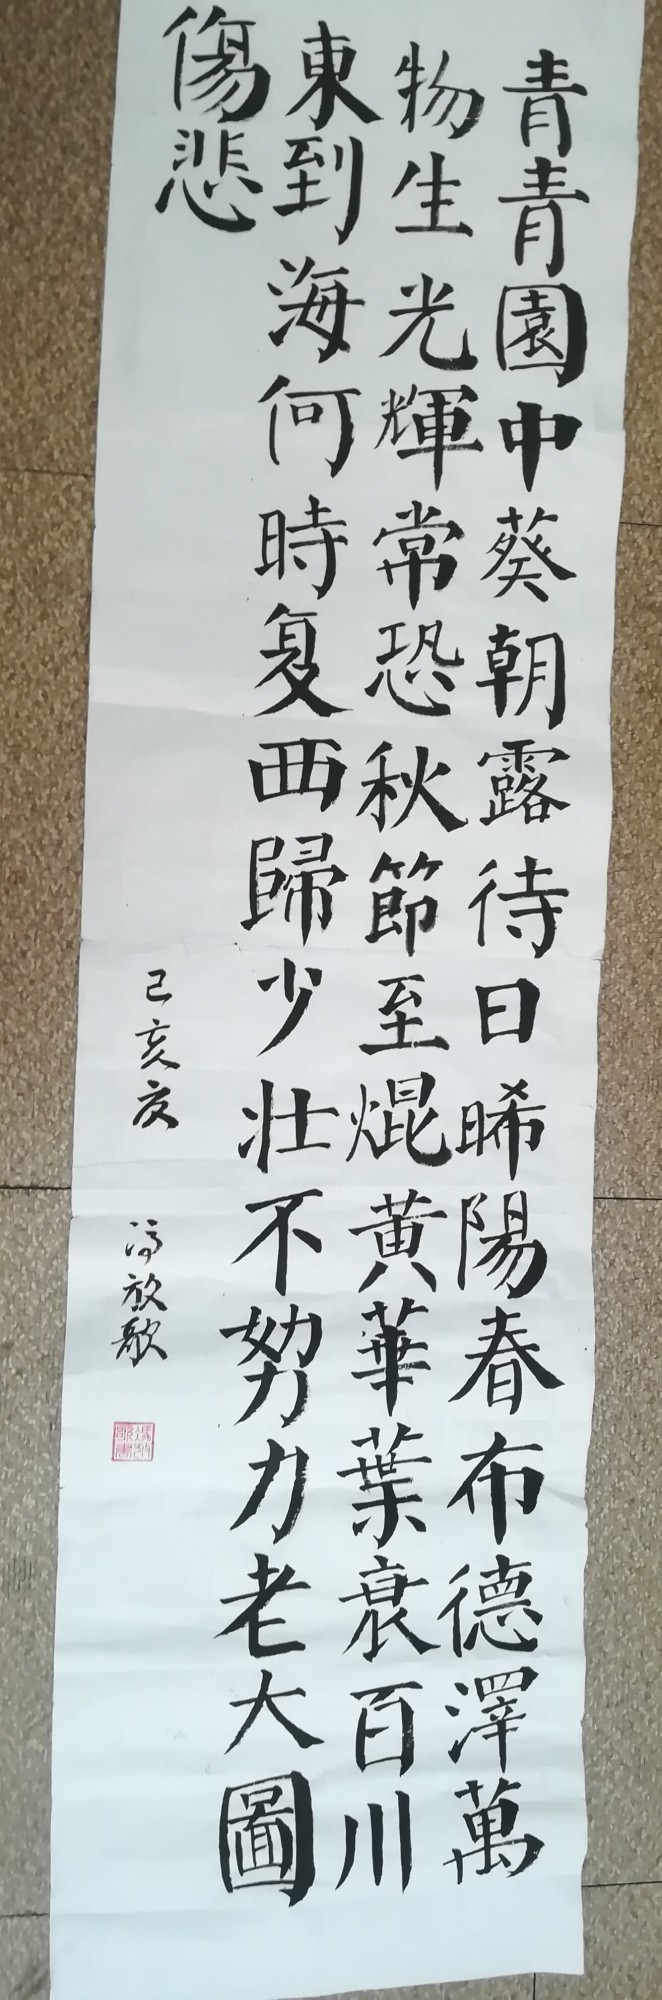 青青園中葵朝露待日晞陽春布德澤萬
物生光輝常恐秋節至焜黃華葉衰百川
東到海何時复西歸少壯不努力老大圖
傷悲
己亥夏
馮放歌